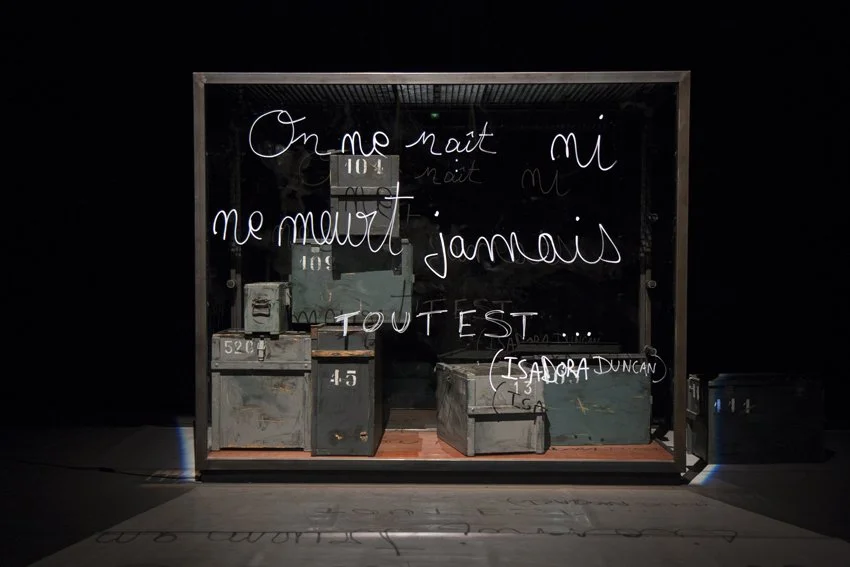 On ne naît ni
ne meurt jamais
TOUT EST ...
(ISADORA DUNCAN)
104
109
526
45
13